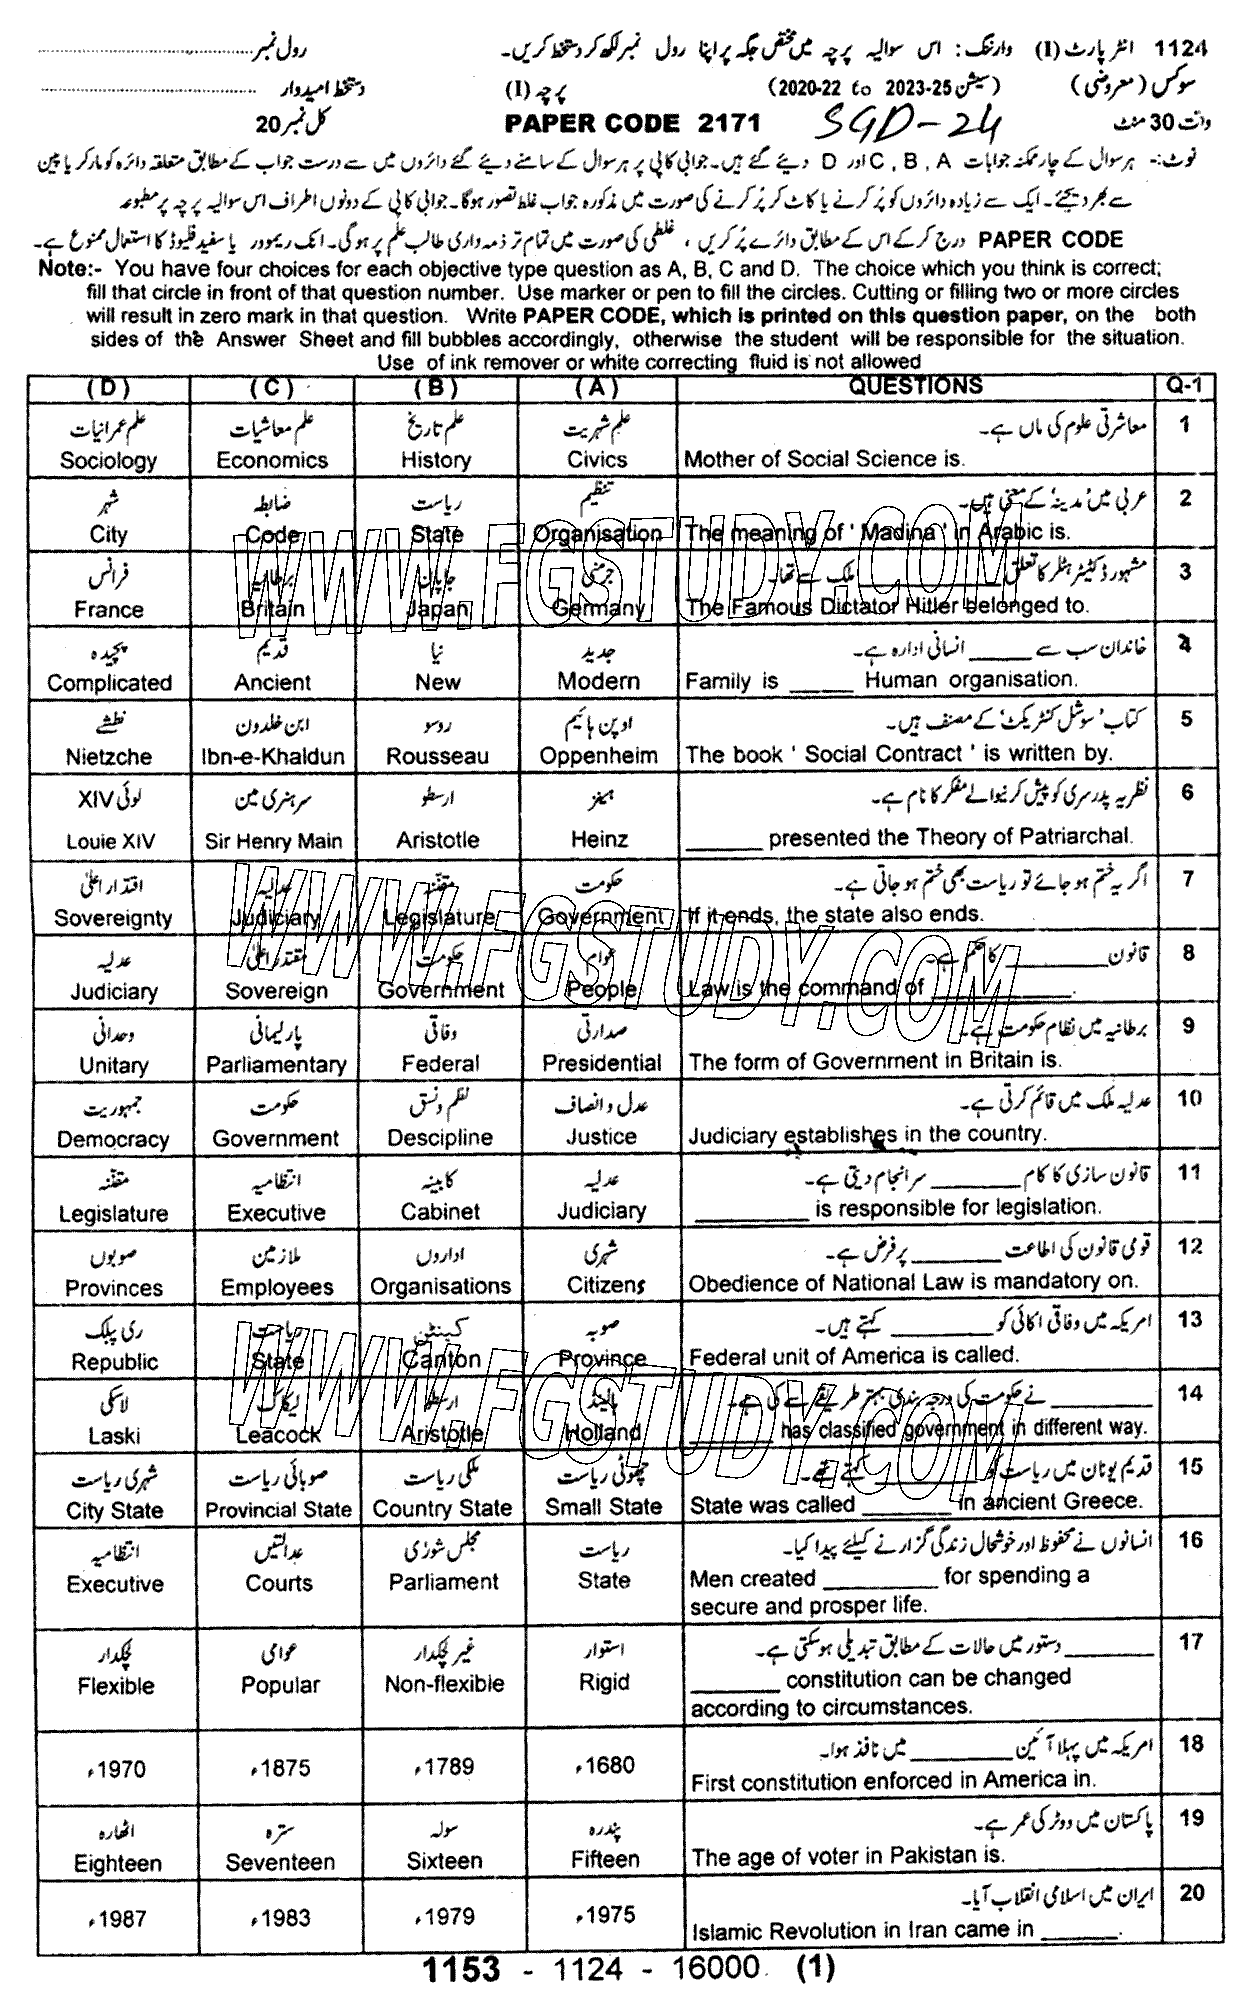 1124 انٹر پارٹ (I) وارننگ: اس سوالیہ پرچہ میں مختص جگہ پر اپنا رول نمبر لکھ کر دستخط کریں۔ رول نمبر
سوکس (معروضی) (سیشن 2020-22 to 2023-25) پرچہ (I) دستخط امیدوار
وقت 30 منٹ SGD-24 PAPER CODE 2171 کل نمبر 20
نوٹ:- ہر سوال کے چار ممکنہ جوابات A , B , C اور D دیئے گئے ہیں۔ جوابی کاپی پر ہر سوال کے سامنے دیئے گئے دائروں میں سے درست جواب کے مطابق متعلقہ دائرہ کو مارکر یا پین
سے بھر دیجئے۔ ایک سے زیادہ دائروں کو پُر کرنے یا کاٹ کر پُر کرنے کی صورت میں مذکورہ جواب غلط تصور ہوگا۔ جوابی کاپی کے دونوں اطراف اس سوالیہ پرچہ پر مطبوعہ
PAPER CODE درج کر کے اس کے مطابق دائرے پُر کریں ، غلطی کی صورت میں تمام تر ذمہ داری طالب علم پر ہوگی۔ انک ریموور یا سفید فلیوڈ کا استعمال ممنوع ہے۔
Note:- You have four choices for each objective type question as A, B, C and D. The choice which you think is correct;
fill that circle in front of that question number. Use marker or pen to fill the circles. Cutting or filling two or more circles
will result in zero mark in that question. Write PAPER CODE, which is printed on this question paper, on the both
sides of the Answer Sheet and fill bubbles accordingly, otherwise the student will be responsible for the situation.
Use of ink remover or white correcting fluid is not allowed
(D) (C) (B) (A) QUESTIONS Q-1
علم عمرانیات علم معاشیات علم تاریخ علم شہریت معاشرتی علوم کی ماں ہے۔ 1
Sociology Economics History Civics Mother of Social Science is.
شہر ضابطہ ریاست تنظیم عربی میں 'مدینہ' کے معنی ہیں۔ 2
City Code State Organisation The meaning of ' Madina ' in Arabic is.
فرانس برطانیہ جاپان جرمنی مشہور ڈکٹیٹر ہٹلر کا تعلق ________ ملک سے تھا۔ 3
France Britain Japan Germany The Famous Dictator Hitler belonged to.
پیچیدہ قدیم نیا جدید خاندان سب سے _____ انسانی ادارہ ہے۔ 4
Complicated Ancient New Modern Family is _____ Human organisation.
نطشے ابن خلدون روسو اوپن ہائیم کتاب 'سوشل کنٹریکٹ' کے مصنف ہیں۔ 5
Nietzche Ibn-e-Khaldun Rousseau Oppenheim The book ' Social Contract ' is written by.
لوئی XIV سر ہنری مین ارسطو ہینز نظریہ پدرسری کو پیش کرنیوالے مفکر کا نام ہے۔ 6
Louie XIV Sir Henry Main Aristotle Heinz ______ presented the Theory of Patriarchal.
اقتدار اعلیٰ عدلیہ مقننہ حکومت اگر یہ ختم ہو جائے تو ریاست بھی ختم ہو جاتی ہے۔ 7
Sovereignty Judiciary Legislature Government If it ends, the state also ends.
عدلیہ مقتدر اعلیٰ حکومت عوام قانون ________ کا حکم ہے۔ 8
Judiciary Sovereign Government People Law is the command of __________.
وحدانی پارلیمانی وفاقی صدارتی برطانیہ میں نظام حکومت ہے۔ 9
Unitary Parliamentary Federal Presidential The form of Government in Britain is.
جمہوریت حکومت نظم و نسق عدل و انصاف عدلیہ ملک میں قائم کرتی ہے۔ 10
Democracy Government Descipline Justice Judiciary establishes in the country.
مقننہ انتظامیہ کابینہ عدلیہ قانون سازی کا کام ________ سر انجام دیتی ہے۔ 11
Legislature Executive Cabinet Judiciary _________ is responsible for legislation.
صوبوں ملازمین اداروں شہری قومی قانون کی اطاعت ________ پر فرض ہے۔ 12
Provinces Employees Organisations Citizens Obedience of National Law is mandatory on.
ری پبلک ریاست کینٹن صوبہ امریکہ میں وفاقی اکائی کو ________ کہتے ہیں۔ 13
Republic State Canton Province Federal unit of America is called.
لاسکی لیکاک ارسطو ہالینڈ ________ نے حکومت کی درجہ بندی بہتر طریقے سے کی ہے۔ 14
Laski Leacock Aristotle Holland ______ has classified government in different way.
شہری ریاست صوبائی ریاست ملکی ریاست چھوٹی ریاست قدیم یونان میں ریاست کو ________ کہتے تھے۔ 15
City State Provincial State Country State Small State State was called _______ in ancient Greece.
انتظامیہ عدالتیں مجلس شوریٰ ریاست انسانوں نے محفوظ اور خوشحال زندگی گزارنے کیلئے پیدا کیا۔ 16
Executive Courts Parliament State Men created _________ for spending a
secure and prosper life.
لچکدار عوامی غیر لچکدار استوار ________ دستور میں حالات کے مطابق تبدیلی ہو سکتی ہے۔ 17
Flexible Popular Non-flexible Rigid _______ constitution can be changed
according to circumstances.
1970ء 1875ء 1789ء 1680ء امریکہ میں پہلا آئین ________ میں نافذ ہوا۔ 18
First constitution enforced in America in.
اٹھارہ سترہ سولہ پندرہ پاکستان میں ووٹر کی عمر ہے۔ 19
Eighteen Seventeen Sixteen Fifteen The age of voter in Pakistan is.
1987ء 1983ء 1979ء 1975ء ایران میں اسلامی انقلاب آیا۔ 20
Islamic Revolution in Iran came in ______.
1153 - 1124 - 16000 (1)
WWW.FGSTUDY.COM
WWW.FGSTUDY.COM
WWW.FGSTUDY.COM